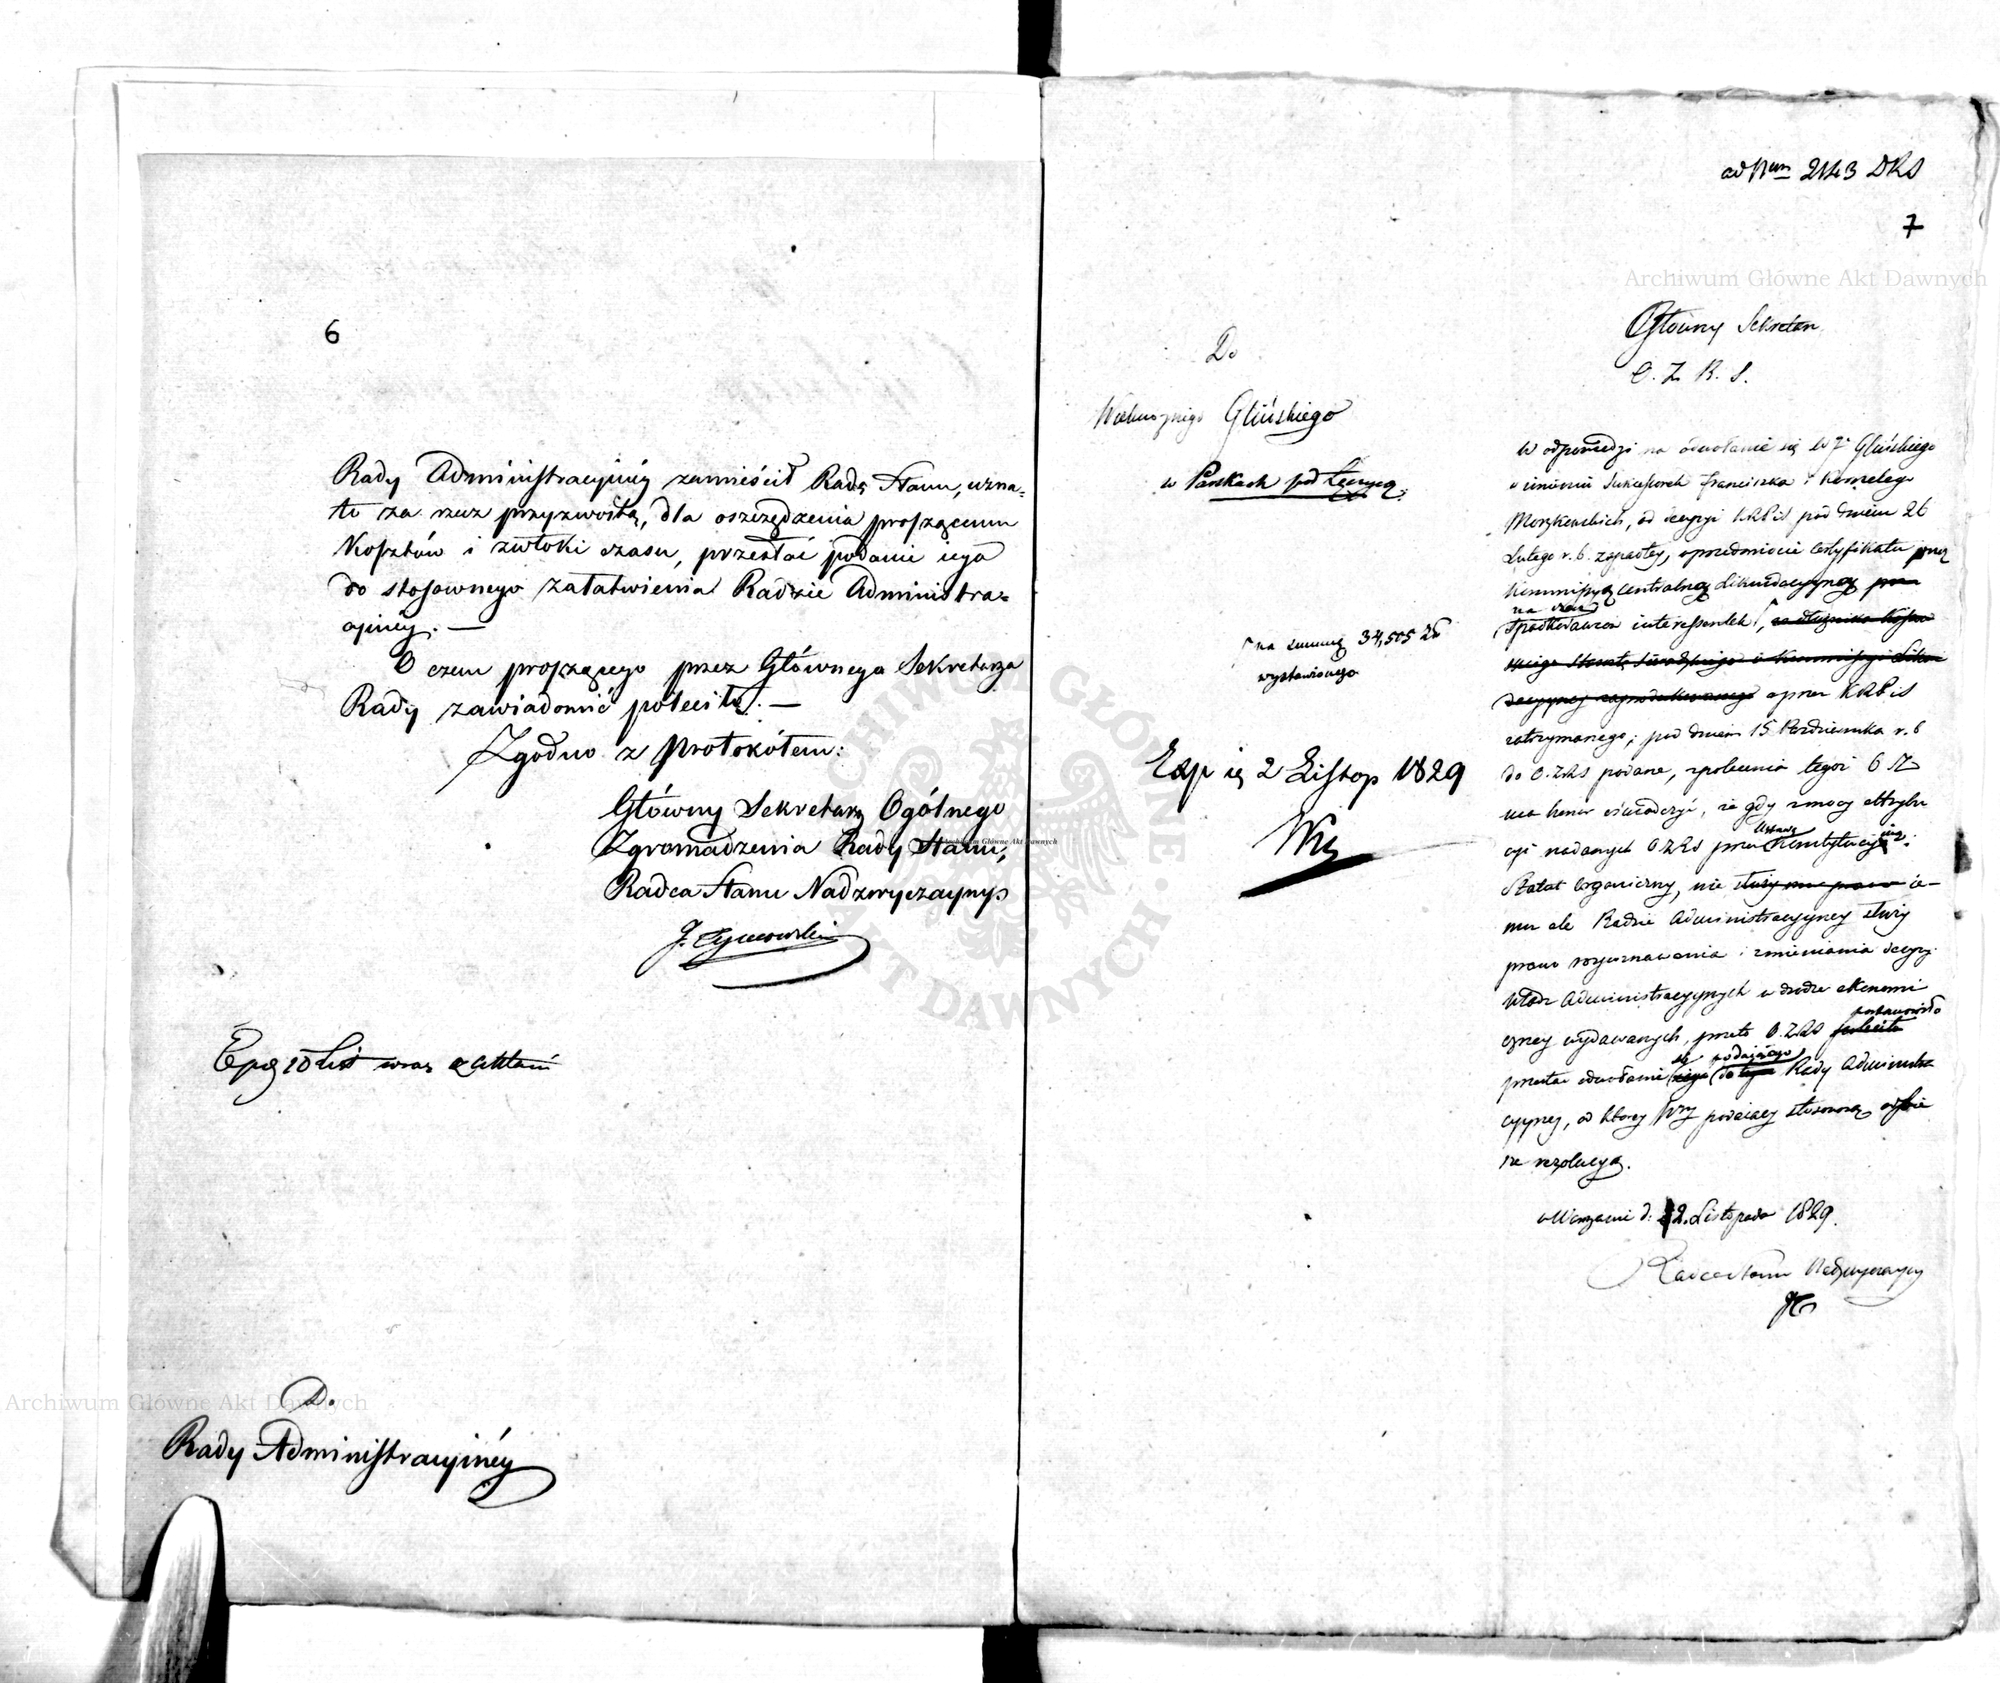 6
Rady Administracyiney zamieścił Radę Stanu, uzna-
ło za rzecz przyzwoitą, dla oszczędzenia proszącemu
Kosztów i zwłoki czasu, przesłać podanie iego
do stosownego załatwienia Radzie Administra-
cyiney. —
O czem proszącego przez Głównego Sekretarza
Rady zawiadomić poleciło. —
Zgodno z Protokółem:
Główny Sekretarz Ogólnego
Zgromadzenia Rady Stanu,
Radca Stanu Nadzwyczayny
J. Tymowski
10 List wraz z aktami
D.
Rady Administracyinéy
ad Num 2143 DRS
7
Główny Sekretarz
O. Z. R. S.
Do
Wielmożnego Glińskiego
w Parskach pod Łęczycą
na summę 34,505 zł
wystawionego
Exp ię 2 Listop 1829
W odpowiedzi na odwołanie się W Glińskiego
w imieniu Sukcessorek Franciszka i Kornelego
Morzkowskich, od decyzyi KRPiS pod dniem 26
Lutego r. b. zapadłey, w przedmiocie Certyfikatu przez
Kommissyą Centralną Likwidacyyną
na rzecz
Spadkodawców interessentek,
a przez KRPiS
zatrzymanego; pod dniem 15 Października r. b
do O.ZRS podane, z polecenia tegoż O Z
ma honor oświadczyć, że gdy z mocy attrybu
cyi nadanych O.ZRS przez Ustawę Konstytucyyną i
Statut Organiczny, nie służy mu prawo ie-
mu ale Radzie Administracyyney służy
prawo rozpoznawania i zmieniania decyzyi
Władz Administracyynych w drodze ekonomi
czney wydawanych, przeto O.ZRS poleciło
postanowiło
przesłać odwołanie się podaiącego do Rady Administra
cyyney, od którey W podaiący stosowną odbie
rze rezolucyą.
w Warszawie d. 2. Listopada 1829.
Radca Stanu Nadzwyczayny
Archiwum Główne Akt Dawnych
Archiwum Główne Akt Dawnych
Archiwum Główne Akt Dawnych
ARCHIWUM GŁÓWNE AKT DAWNYCH